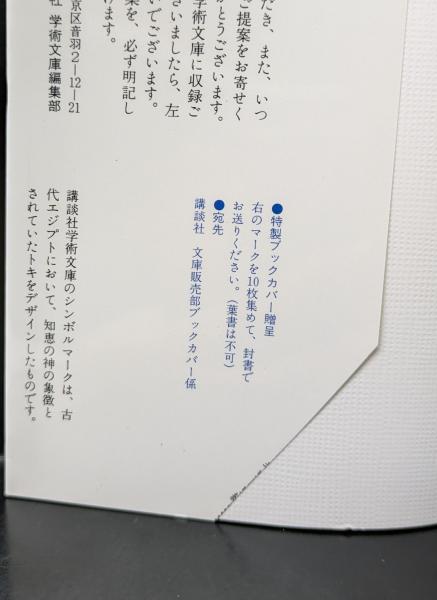 だき、また、いつ
ご提案をお寄せく
がとうございます。
学術文庫に収録ご
さいましたら、左
いでございます。
案を、必ず明記し
けます。
京区音羽2―12―21
社 学術文庫編集部
●特製ブックカバー贈呈
右のマークを10枚集めて、封書で
お送りください。（葉書は不可）
●宛先
講談社 文庫販売部ブックカバー係
講談社学術文庫のシンボルマークは、古
代エジプトにおいて、知恵の神の象徴と
されていたトキをデザインしたものです。